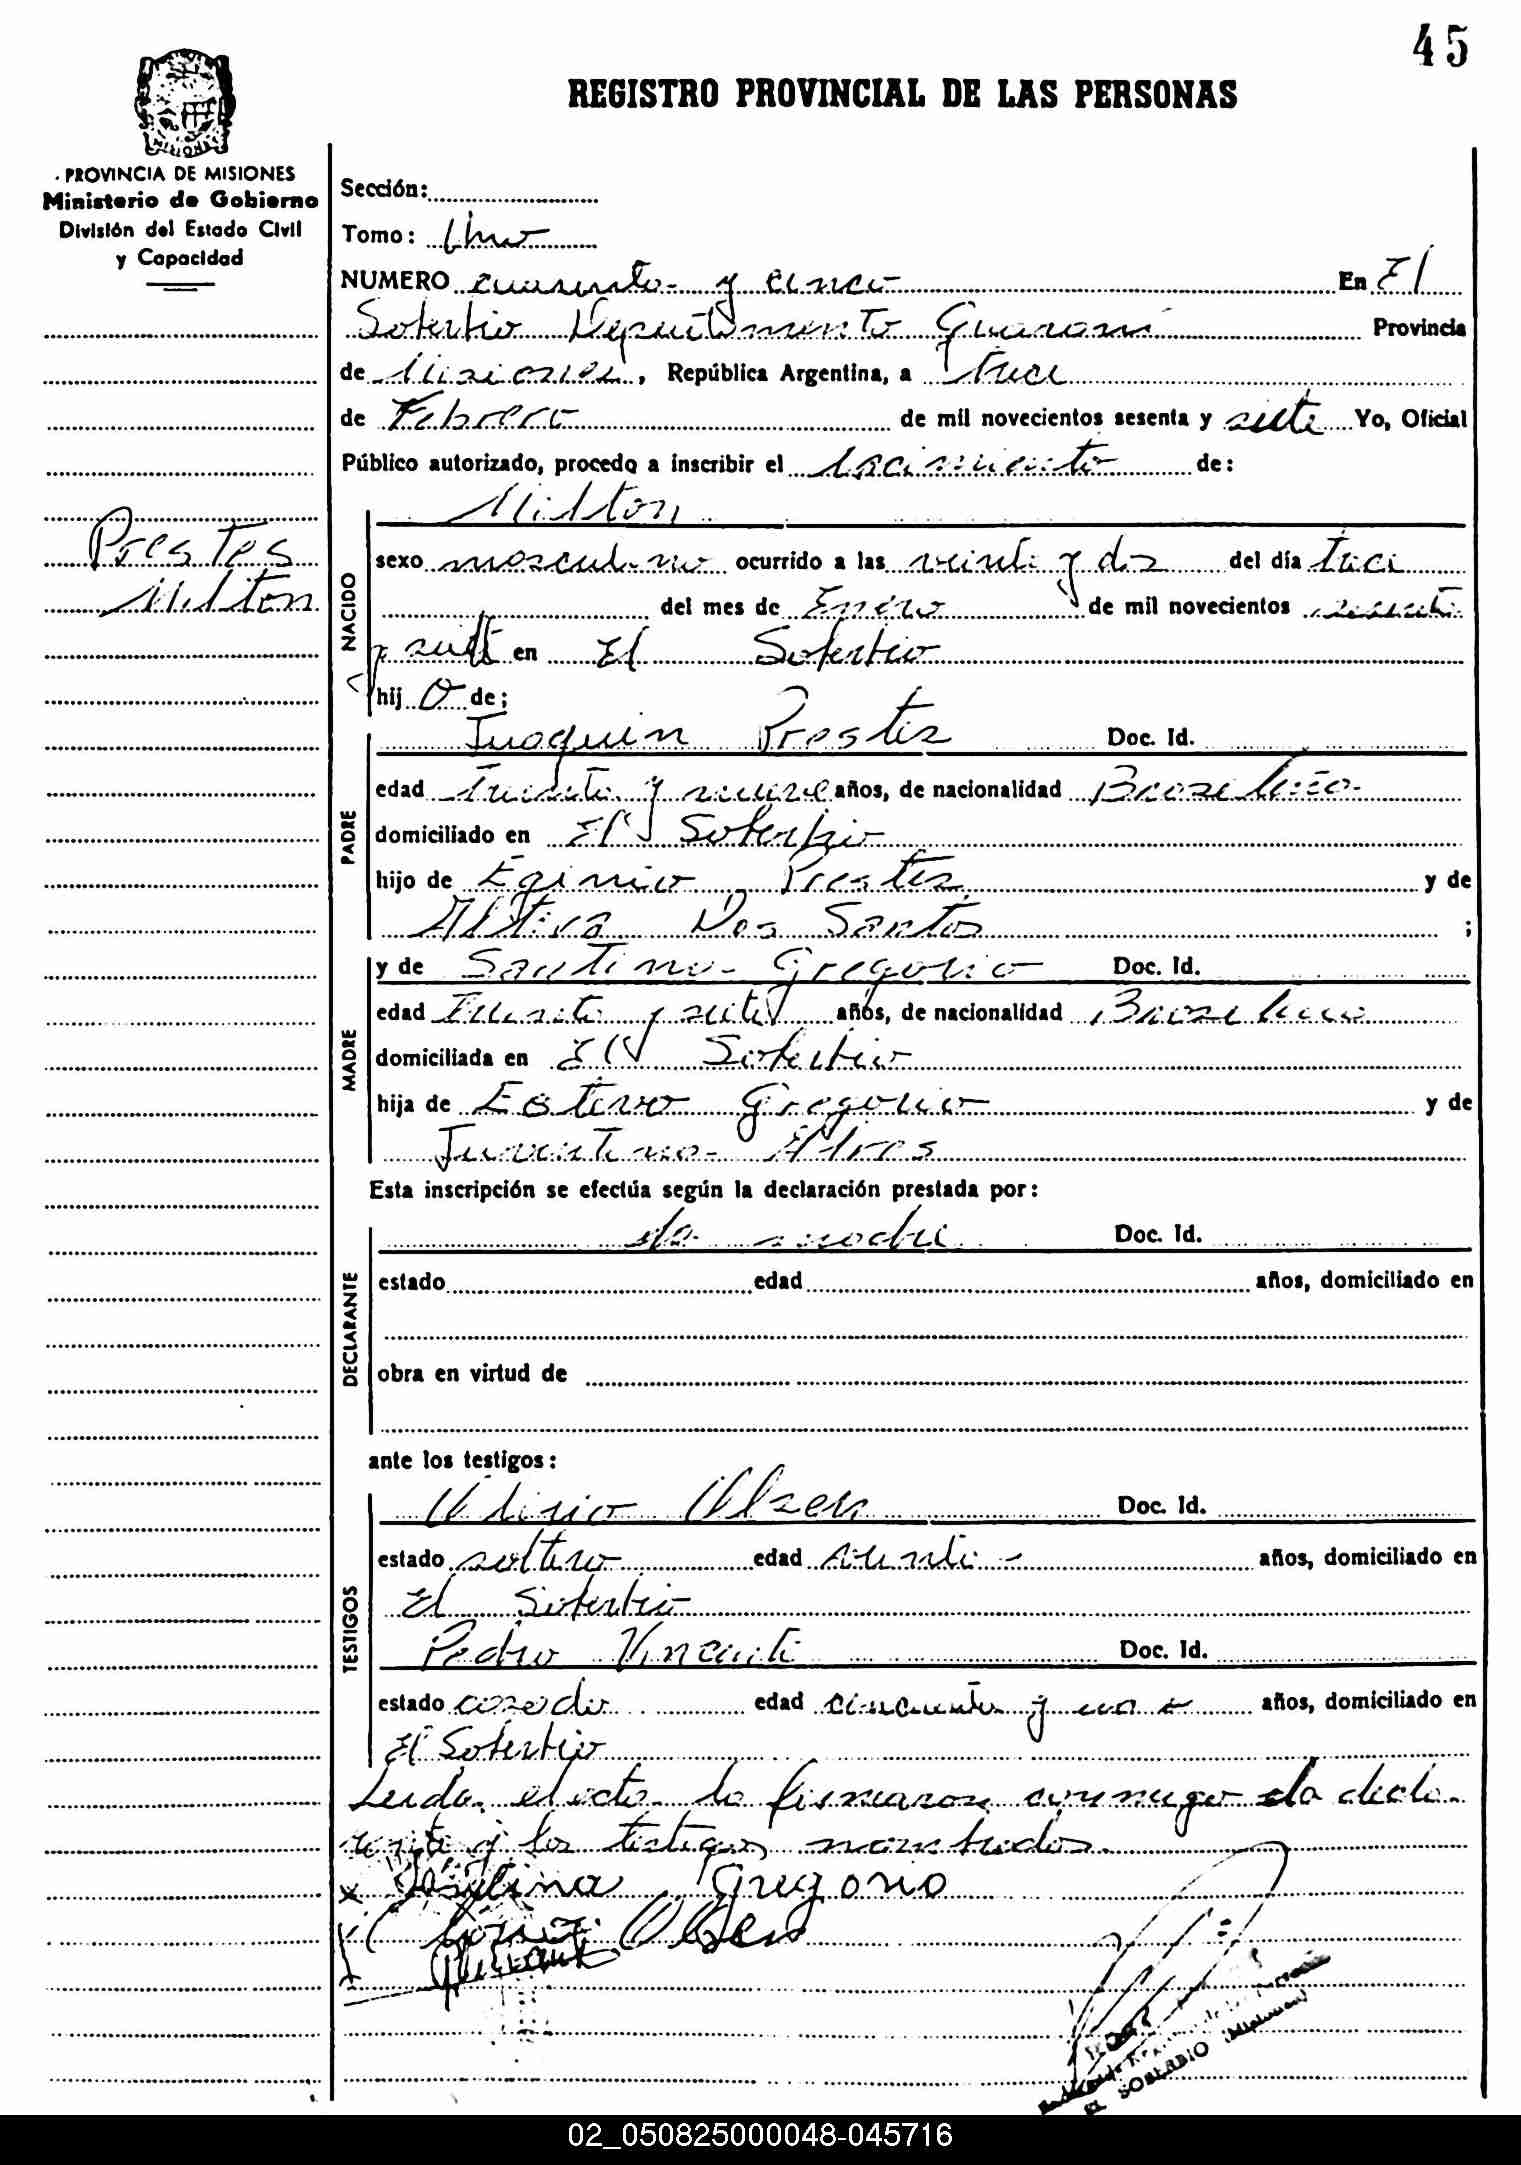 45
REGISTRO PROVINCIAL DE LAS PERSONAS
MISIONES
PROVINCIA DE MISIONES
Ministerio de Gobierno
División del Estado Civil
y Capacidad
Prestes
Milton
Sección:
Tomo: Uno
NUMERO cuarenta y cinco En El
Soberbio Departamento Guarani Provincia
de Misiones, República Argentina, a trece
de Febrero de mil novecientos sesenta y siete Yo, Oficial
Público autorizado, procedo a inscribir el nacimiento de:
NACIDO
Milton
sexo masculino ocurrido a las veinti y dos del día trece
del mes de Enero de mil novecientos sesenta
y siete en El Soberbio
hij o de;
PADRE
Juaquin Prestes Doc. Id.
edad treinta y nueve años, de nacionalidad Brasileña
domiciliado en El Soberbio
hijo de Eginio Prestes y de
Altiva Dos Santos ;
MADRE
y de Gregorio Doc. Id.
edad treinta y siete años, de nacionalidad Brasilera
domiciliada en El Soberbio
hija de Estevo Gregorio y de
Juventina
Esta inscripción se efectúa según la declaración prestada por:
DECLARANTE
la madre Doc. Id.
estado edad años, domiciliado en
obra en virtud de
ante los testigos:
TESTIGOS
Olsen Doc. Id.
estado soltero edad veinte años, domiciliado en
El Soberbio
Pedro Vincenti Doc. Id.
estado casado edad cincuenta y uno años, domiciliado en
El Soberbio
Leida el acta la firmaron conmigo la decla-
rante y los testigos nombrados.
x Gregorio
Olsen
EL SOBERBIO (Misiones)
02_050825000048-045716